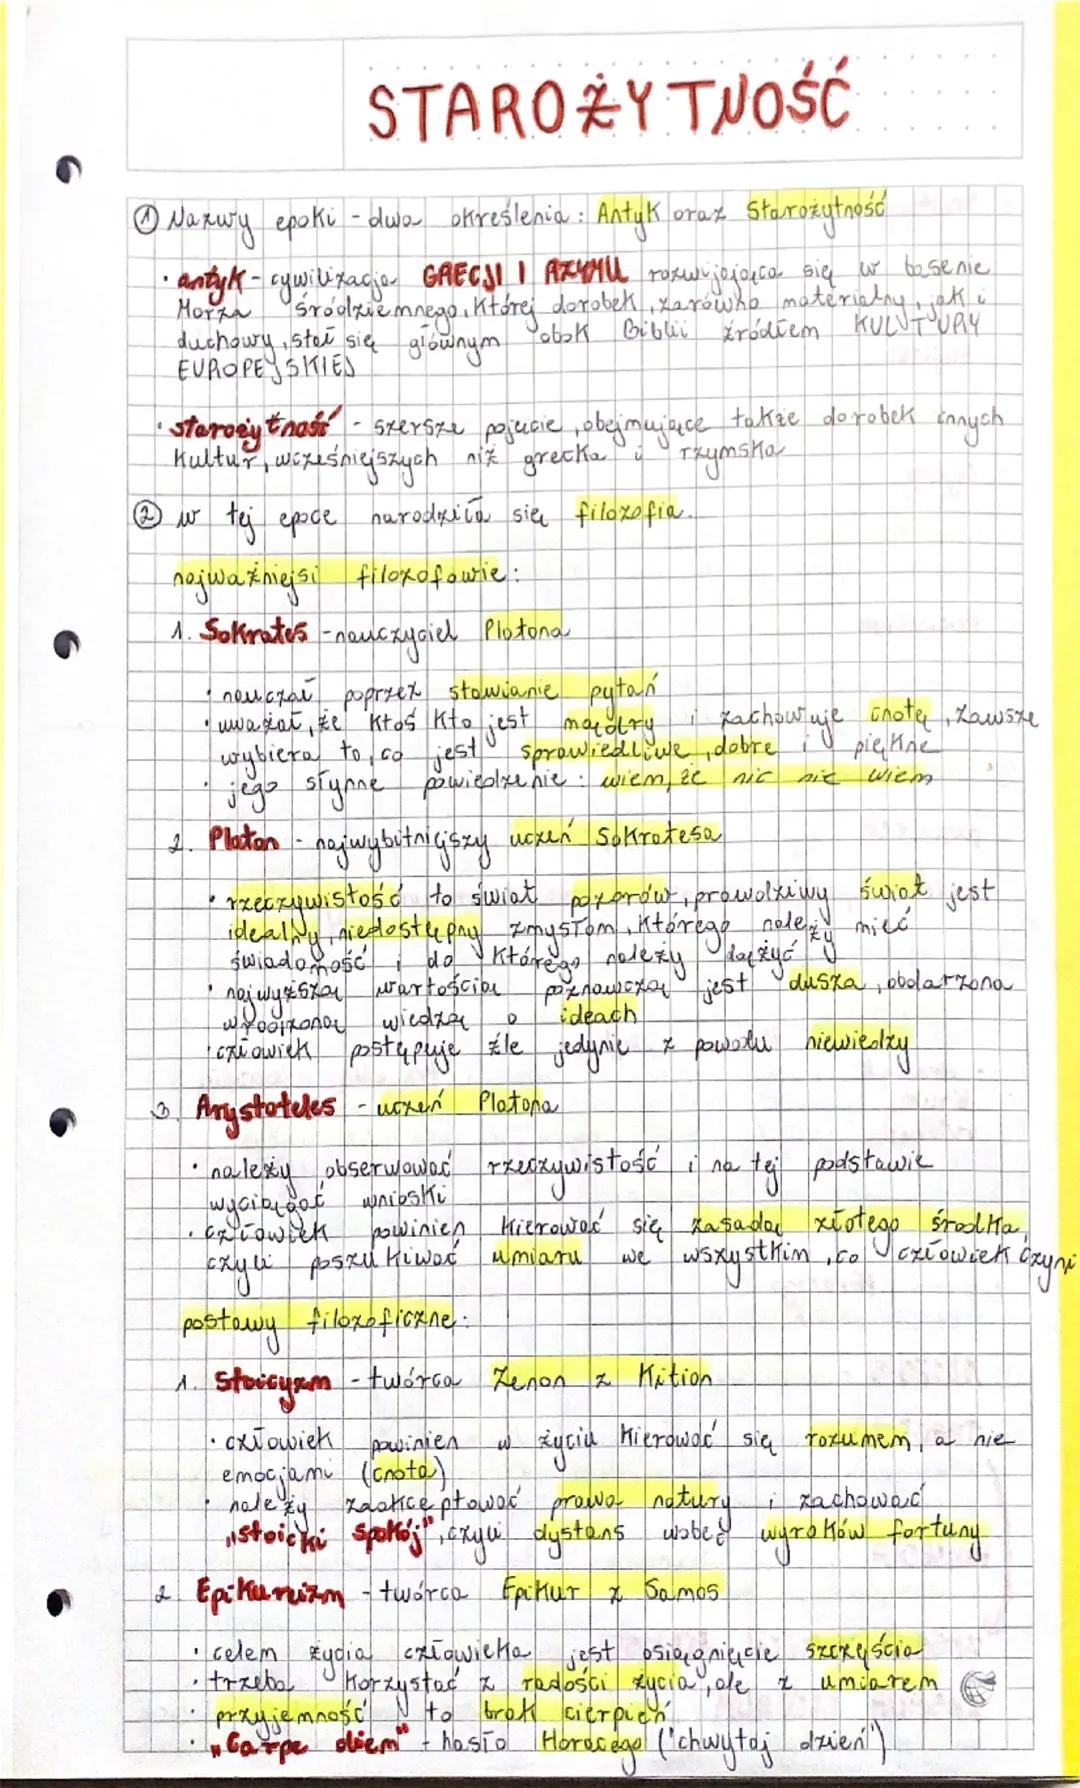 STAROŻYTNOŚĆ
① Nazwy epoki - dwa określenia: Antyk oraz Starożytność
• antyk - cywilizacja GRECJI I RZYMU rozwijająca się w basenie
Morza Śródziemnego, której dorobek, zarówno materialny, jak i
duchowy, stał się głównym obok Biblii źródłem KULTURY
EUROPEJSKIEJ
• starożytność - szersze pojęcie, obejmujące także dorobek innych
kultur, wcześniejszych niż grecka i rzymska
② w tej epoce narodziła się filozofia.
najważniejsi filozofowie:
1. Sokrates - nauczyciel Platona
• nauczał poprzez stawianie pytań
• uważał, że ktoś kto jest mądry i zachowuje cnotę, zawsze
wybiera to, co jest sprawiedliwe, dobre i piękne
• jego słynne powiedzenie: wiem, że nic nie wiem
2. Platon - najwybitniejszy uczeń Sokratesa
• rzeczywistość to świat pozorów, prawdziwy świat jest
idealny, niedostępny zmysłom, którego należy mieć
świadomość i do którego należy dążyć
• najwyższą wartością poznawczą jest dusza, obdarzona
wrodzoną wiedzą o ideach
• człowiek postępuje źle jedynie z powodu niewiedzy
3. Arystoteles - uczeń Platona
• należy obserwować rzeczywistość i na tej podstawie
wyciągać wnioski
• człowiek powinien kierować się zasadą złotego środka,
czyli poszukiwać umiaru we wszystkim, co człowiek czyni
postawy filozoficzne:
1. Stoicyzm - twórca Zenon z Kition
• człowiek powinien w życiu kierować się rozumem, a nie
emocjami (cnota)
• należy zaakceptować prawa natury i zachować
"stoicki spokój", czyli dystans wobec wyroków fortuny
2. Epikureizm - twórca Epikur z Samos
• celem życia człowieka jest osiągnięcie szczęścia
• trzeba korzystać z radości życia, ale z umiarem
• przyjemność to brak cierpień
• "Carpe diem" - hasło Horacego ('chwytaj dzień')